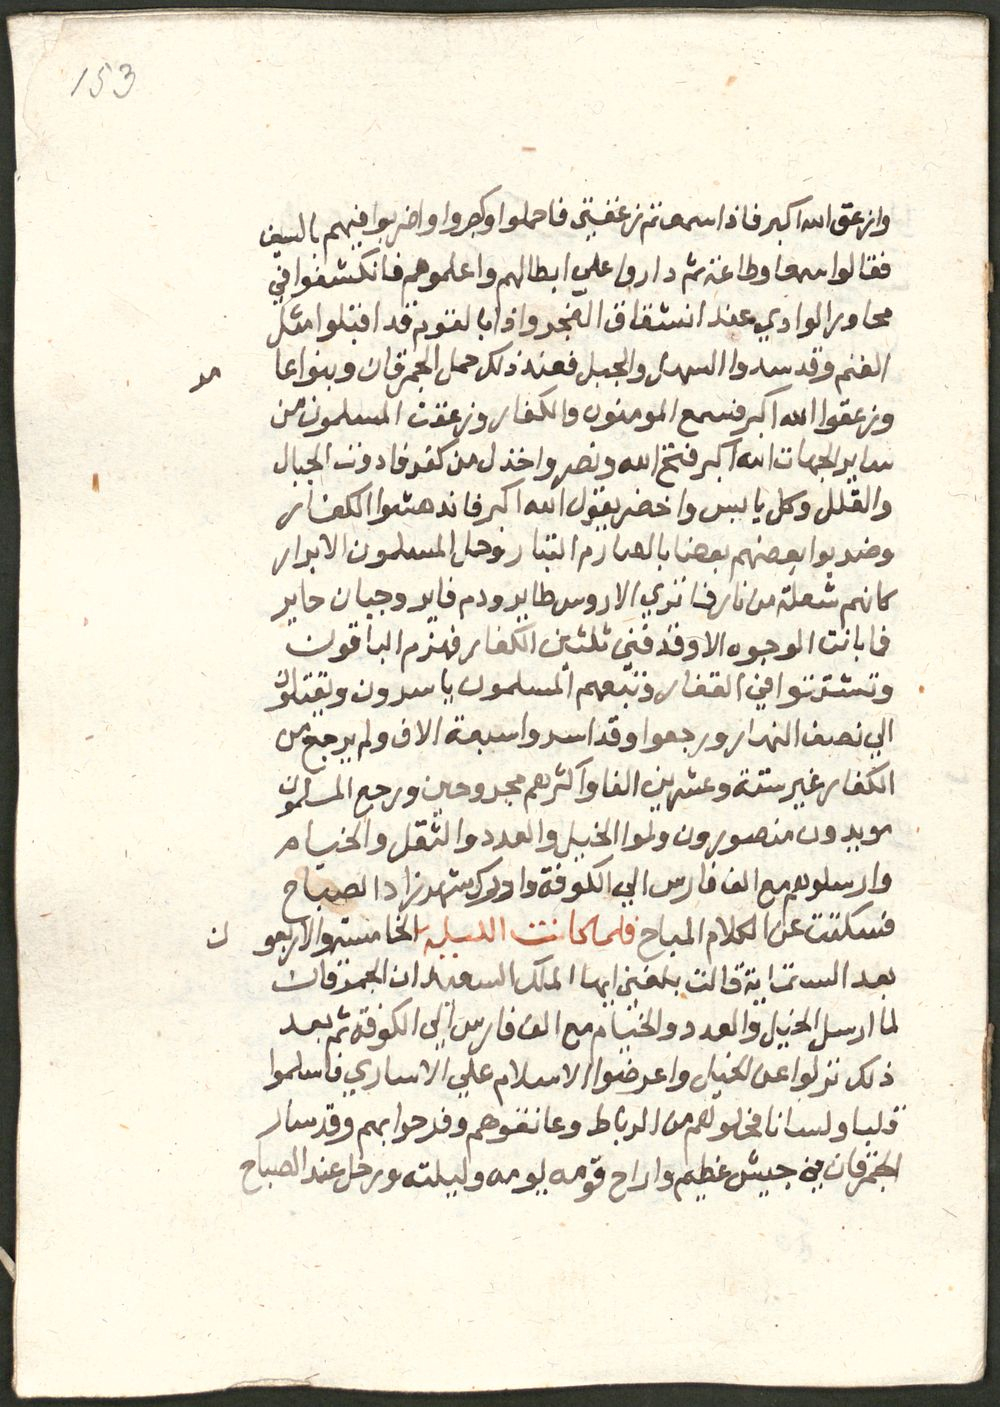 153
وازعق الله اكبر فاذا سمعتم زعقتي فاحملوا وكبروا واضربوا فيهم بالسيف
فقالوا سمعا وطاعة ثم داروا علي ابطالهم واعلموهم فانكشفوا في
محاور الوادي عند انشقاق الفجر واذا بالقوم قد اقبلوا مثل
الغنم وقد سدوا السهل والجبل فعند ذلك حمل الجمرقان وبنوا عا
مر
وزعقوا الله اكبر فسمع المومنون والكفار وزعقت المسلمون من
ساير الجهات الله اكبر فتح الله ونصر واخذل من كفر فادوت الجبال
والقلل وكل يابس واخضر يقول الله اكبر فاندهشوا الكفار
وضربوا بعضهم بعضا بالصارم البتار وحمل المسلمون الابرار
كانهم شعلة من نار فما تري الا روس طاير ودم فاير وجبان حاير
فما بانت الوجوه الا وقد فني ثلثين الكفار فهزم الباقون
وتشتتوا في القفار وتبعهم المسلمون ياسرون ويقتلون
الي نصف النهار ورجعوا وقد اسروا سبعة الاف ولم يرجع من
الكفار غير ستة وعشرين الفا واكثرهم مجروحين ورجع المسلمون
مويدون منصورون ولموا الخيل والعدد والثقل والخيام
وارسلوهم مع الف فارس الي الكوفة وادرك شهرزاد الصباح
فسكتت عن الكلام المباح فلما كانت الليلة الخامسة والاربعو
ن
بعد الستماية قالت بلغني ايها الملك السعيد ان الجمرقان
لما ارسل الخيل والعدد والخيام مع الف فارس الي الكوفة ثم بعد
ذلك نزلوا عن الخيل واعرضوا الاسلام علي الاساري فاسلموا
قلبا ولسانا فحلوهم من الرباط وعانقوهم وفرحوا بهم وقد سار
الجمرقان في جيش عظيم واراح قومه يومه وليلته ورحل عند الصباح